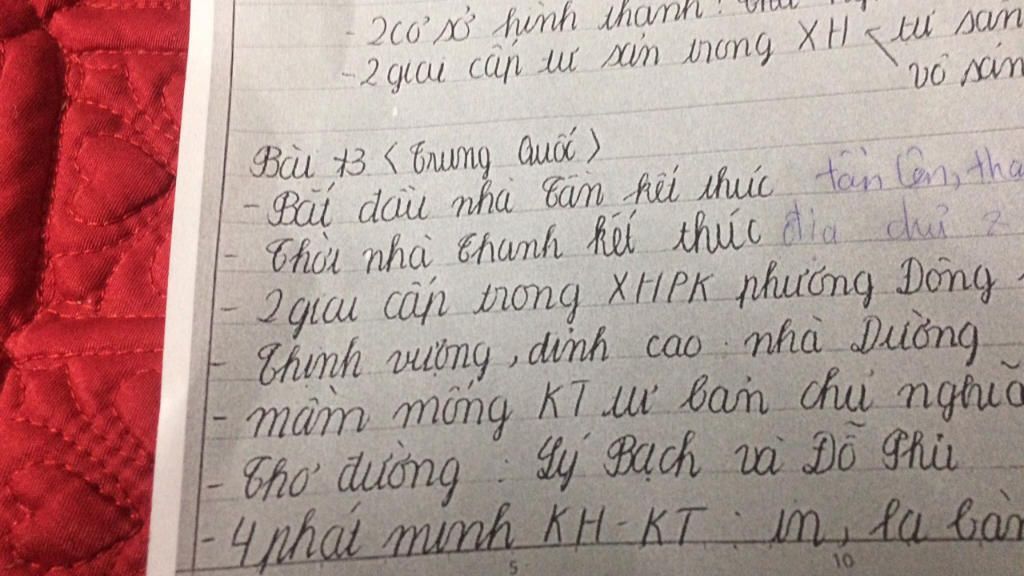 - 2 cơ sở hình thành:
- 2 giai cấp tư sản trong XH < tư sản
vô sản
Bài 13 < Trung Quốc >
- Bắt đầu nhà Tần kết thúc
- Thời nhà Thanh kết thúc địa chủ
- 2 giai cấp trong XHPK phương Đông
- Thịnh vượng, đỉnh cao: nhà Đường
- mầm mống KT tư bản chủ nghĩa
- Thơ đường: Lý Bạch và Đỗ Phủ
- 4 phát minh KH-KT: in, la bàn
5 10